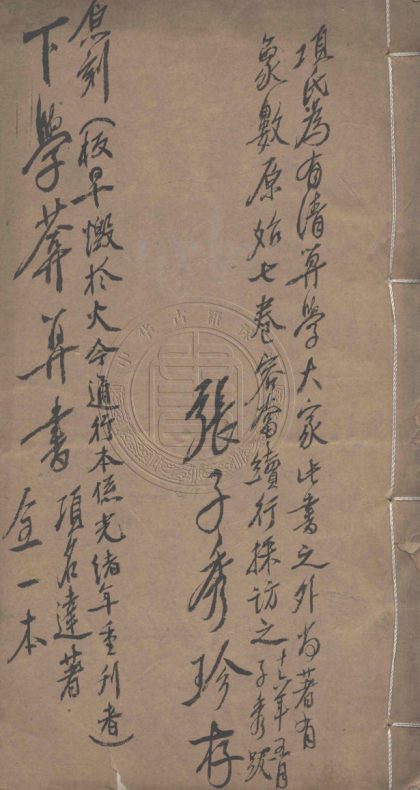 項氏為有清算學大家此書之外尚著有
象數原始七卷容當續行採訪之
十六年五月
子秀跋
張子秀珍存
刻(板早燬於火今通行本係光緒年重刊者)
下學葊算書
項名達著
全一本